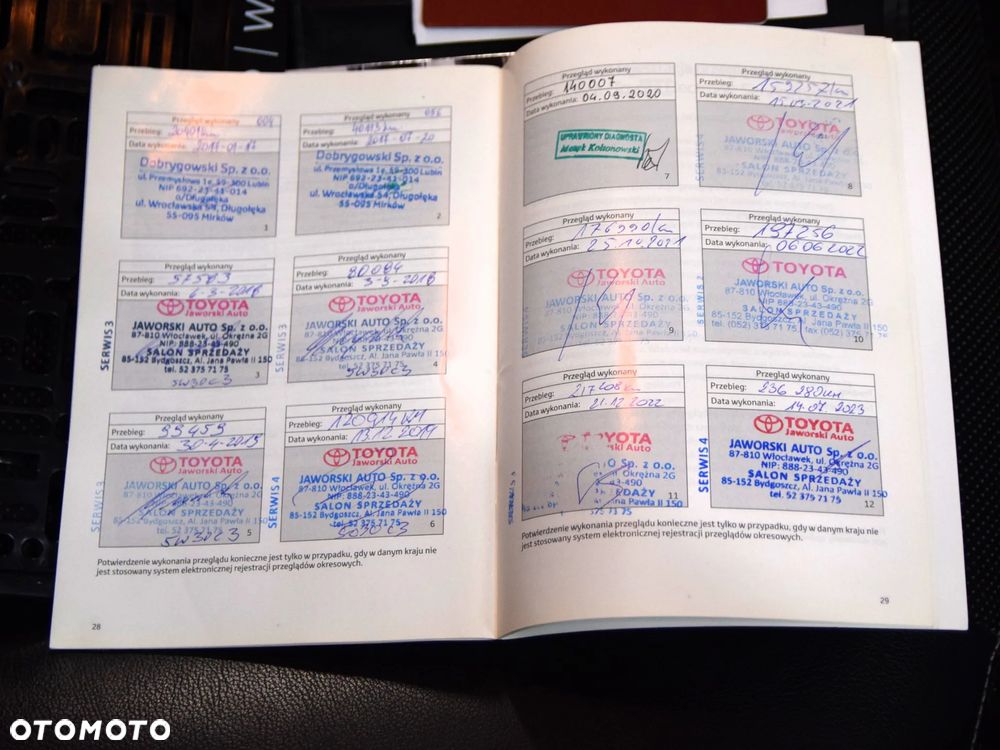 W
Przegląd wykonany
Przebieg:
Data wykonania:
Dobrygowski Sp. z o.o.
ul. Przemysłowa 1e, 59-300 Lubin
NIP 692-23-41-014
o/Długołęka
ul. Wrocławska 54, Długołęka
55-095 Mirków
1
Przegląd wykonany
Przebieg:
Data wykonania:
Dobrygowski Sp. z o.o.
ul. Przemysłowa 1e, 59-300 Lubin
NIP 692-23-41-014
o/Długołęka
ul. Wrocławska 54, Długołęka
55-095 Mirków
2
Przegląd wykonany
Przebieg: 57583
Data wykonania: 6-3-2018
TOYOTA
Jaworski Auto
SERWIS 3
JAWORSKI AUTO Sp. z o.o.
87-810 Włocławek, ul. Okrężna 2G
NIP: 888-23-43-490
SALON SPRZEDAŻY
85-152 Bydgoszcz, Al. Jana Pawła II 150
tel. 52 375 71 75
5W30C3
3
Przegląd wykonany
Przebieg: 80084
Data wykonania:
TOYOTA
Jaworski Auto
SERWIS 3
JAWORSKI AUTO Sp. z o.o.
87-810 Włocławek, ul. Okrężna 2G
NIP: 888-23-43-490
SALON SPRZEDAŻY
85-152 Bydgoszcz, Al. Jana Pawła II 150
tel. 52 375 71 75
5W30C3
4
Przegląd wykonany
Przebieg: 99459
Data wykonania: 30-4-2019
TOYOTA
Jaworski Auto
SERWIS 3
JAWORSKI AUTO Sp. z o.o.
87-810 Włocławek, ul. Okrężna 2G
NIP: 888-23-43-490
SALON SPRZEDAŻY
85-152 Bydgoszcz, Al. Jana Pawła II 150
tel. 52 375 71 75
5W30C3
5
Przegląd wykonany
Przebieg: 120914 km
Data wykonania: 13.12.2019
TOYOTA
Jaworski Auto
SERWIS 4
JAWORSKI AUTO Sp. z o.o.
87-810 Włocławek, ul. Okrężna 2G
NIP: 888-23-43-490
SALON SPRZEDAŻY
85-152 Bydgoszcz, Al. Jana Pawła II 150
tel. 52 375 71 75
6
Potwierdzenie wykonania przeglądu konieczne jest tylko w przypadku, gdy w danym kraju nie
jest stosowany system elektronicznej rejestracji przeglądów okresowych.
28
Przegląd wykonany
Przebieg: 140007
Data wykonania: 04.09.2020
UPRAWNIONY DIAGNOSTA
7
Przegląd wykonany
Przebieg:
Data wykonania: 15.03.2021
TOYOTA
JAWORSKI AUTO Sp. z o.o.
SALON SPRZEDAŻY
8
Przegląd wykonany
Przebieg: 176990 km
Data wykonania: 25.10.2021
TOYOTA
Jaworski Auto
JAWORSKI AUTO Sp. z o.o.
9
Przegląd wykonany
Przebieg: 197256
Data wykonania: 06.06.2022
TOYOTA
Jaworski Auto
SERWIS 2
JAWORSKI AUTO Sp. z o.o.
87-810 Włocławek, ul. Okrężna 2G
SALON SPRZEDAŻY
10
Przegląd wykonany
Przebieg: 217408 km
Data wykonania: 21.12.2022
Jaworski Auto
Sp. z o.o.
Okrężna 2G
Pawła II 150
11
Przegląd wykonany
Przebieg: 236 280 km
Data wykonania: 14.07.2023
TOYOTA
Jaworski Auto
SERWIS 4
JAWORSKI AUTO Sp. z o.o.
87-810 Włocławek, ul. Okrężna 2G
NIP: 888-23-43-490
SALON SPRZEDAŻY
85-152 Bydgoszcz, Al. Jana Pawła II 150
tel. 52 375 71 75
12
Potwierdzenie wykonania przeglądu konieczne jest tylko w przypadku, gdy w danym kraju nie
jest stosowany system elektronicznej rejestracji przeglądów okresowych.
29
OTOMOTO